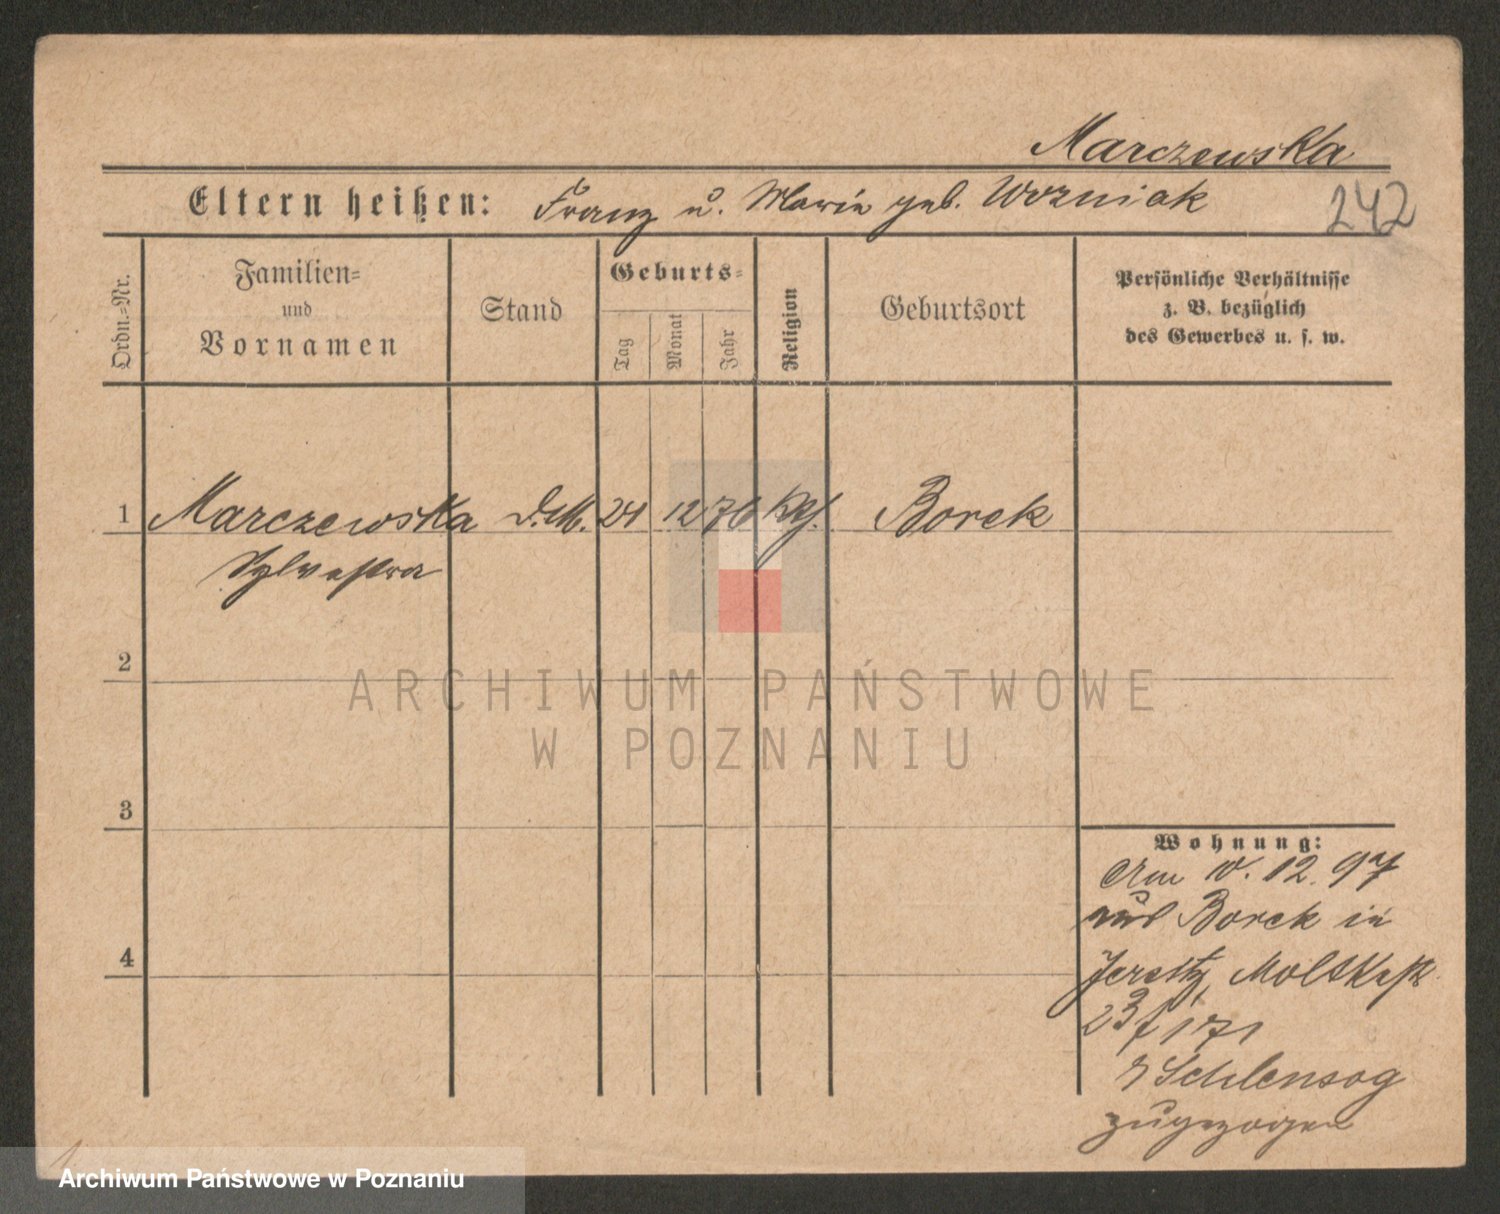 Marczewska
Eltern heißen: Franz u. Marie geb. Wozniak
242
Ordn.-Nr.
Familien-
und
Vornamen
Stand
Geburts-
Tag
Monat
Jahr
Religion
Geburtsort
Persönliche Verhältnisse
z. B. bezüglich
des Gewerbes u. s. w.
1 Marczewska D.M. 24 12 76 kath. Borek
Sylvestra
2
ARCHIWUM PAŃSTWOWE
W POZNANIU
3
Wohnung:
Am 10. 12. 97
aus Borek in
4
Jersitz, Moltkestr.
23
Schlensog
zugezogen
Archiwum Państwowe w Poznaniu